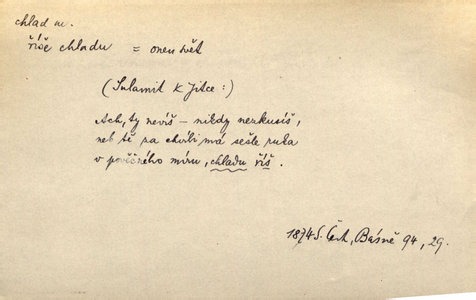 chlad m.
říše chladu = onen svět
(Sulamit k Jitce:)
Ach, ty nevíš – nikdy nezkusíš,
neb tě za chvíli má sešle ruka
v povičného míru, chladu říš.
1874 S. Čech, Básně 94, 29.